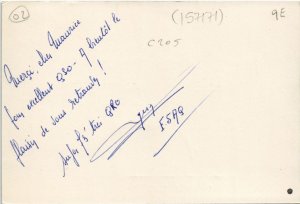 02
(157171)
9E
C205
Merci, cher Maurice
pour excellent QSO - A bientôt le
plaisir de vous retrouver !
73 très QRO
Guy
F5AQ